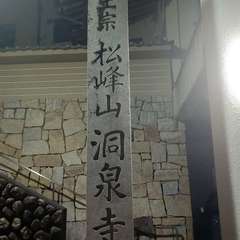 宗 松峰山 洞泉寺